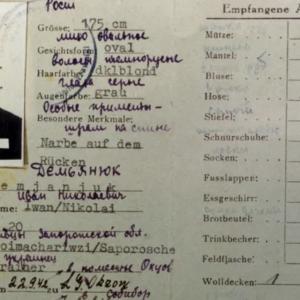 Рост
Grösse: 175 cm
лицо овальное
Gesichtsform: oval
Haarfarbe: dklblond
глаза серые
Augenfarbe: grau
Особые приметы-
Besondere Merkmale:
шрам на спине
Narbe auf dem
Rücken
Демьянюк
emjanjuk
Иван Николаевич
me: Iwan/Nikolai
20
Запорожской обл.
oimachariwzi/Saporosche
украинец
rainer
22.9.42
Собибор
Empfangene A
Mütze:
Mantel:
Bluse:
Hose:
Stiefel:
Schnurschuhe:
Socken:
Fusslappen:
Essgeschirr:
Brotbeutel:
Trinkbecher:
Feldflasche:
Wolldecken: 1